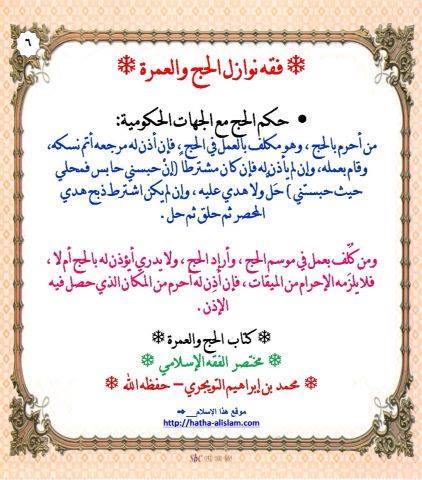 ٦
فقه نوازل الحج والعمرة
• حكم الحج مع الجهات الحكومية:
من أحرم بالحج ، وهو مكلف بالعمل في الحج ، فإن أذن له مرجعه أتم نسكه،
وقام بعمله، وإن لم يأذن له فإن كان مشترطاً (إنْ حبسني حابس فمحلي
حيث حبستني) حَلّ ولا هدي عليه ، وإن لم يكن اشترط ذبح هدي
المحصر ثم حلق ثم حل .
ومن كُلِّف بعمل في موسم الحج ، وأراد الحج ، ولا يدري أيؤذن له بالحج أم لا ،
فلا يلزمه الإحرام من الميقات ، فإن أُذِن له أحرم من المكان الذي حصل فيه
الإذن .
كتاب الحج والعمرة
مختصر الفقه الإسلامي
محمد بن إبراهيم التويجري – حفظه الله
موقع هذا الإسلام__⇒
http://hatha-alislam.com